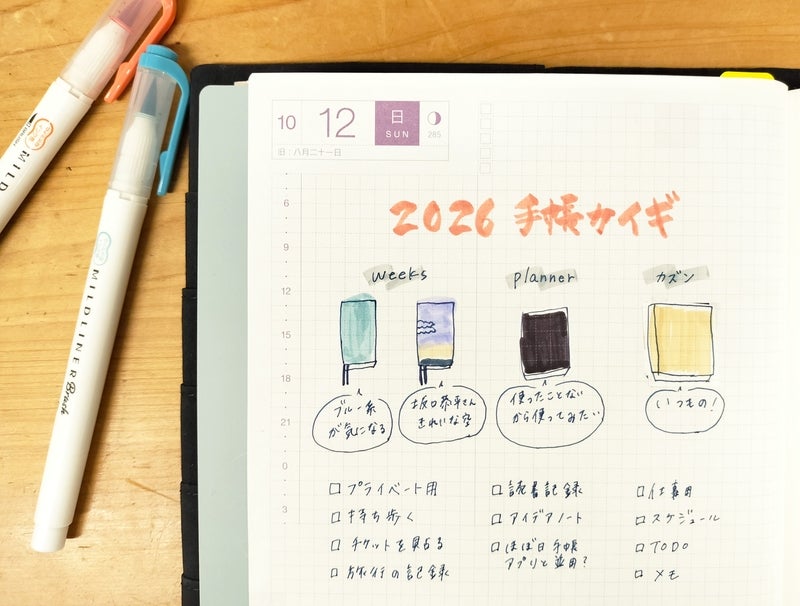 MILD
MILDLINER Brush
10 12 日 SUN 285
旧：八月二十一日
6
9
12
15
18
21
0
3
2026 手帳カイギ
weeks planner カズン
ブルー系
が気になる
坂口恭平さん
きれいな空
使ったことない
から使ってみたい
いつもの!
□プライベート用
□持ち歩く
□チケットを貼る
□旅行の記録
□読書記録
□アイデアノート
□ほぼ日手帳
アプリと並用?
□仕事用
□スケジュール
□TODO
□メモ